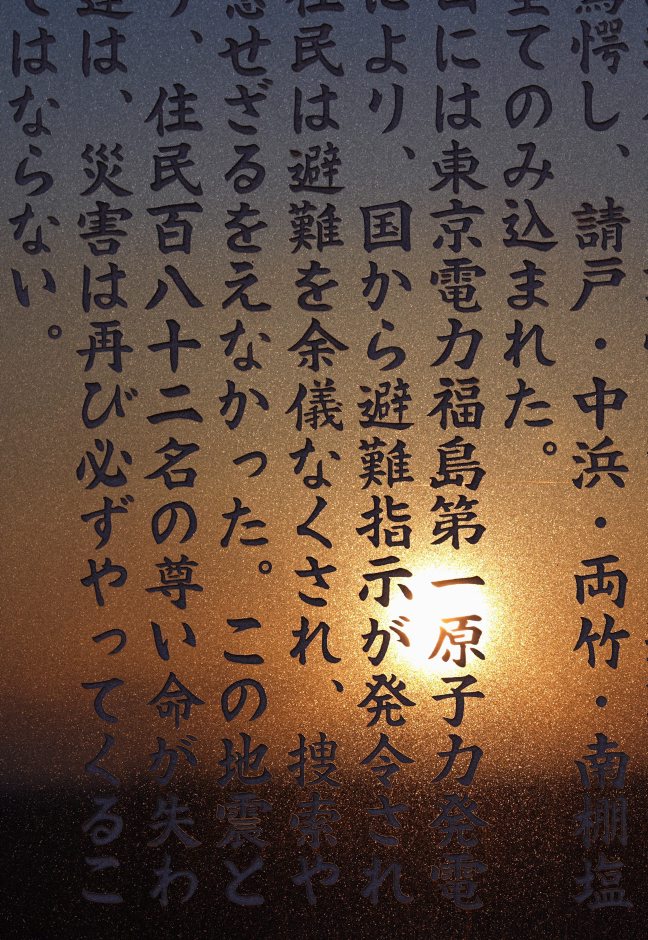 驚愕し、請戸・中浜・両竹・南棚塩
全てのみ込まれた。
日には東京電力福島第一原子力発電
により、国から避難指示が発令され
住民は避難を余儀なくされ、捜索や
念せざるをえなかった。この地震と
り、住民百八十二名の尊い命が失わ
達は、災害は再び必ずやってくるこ
てはならない。